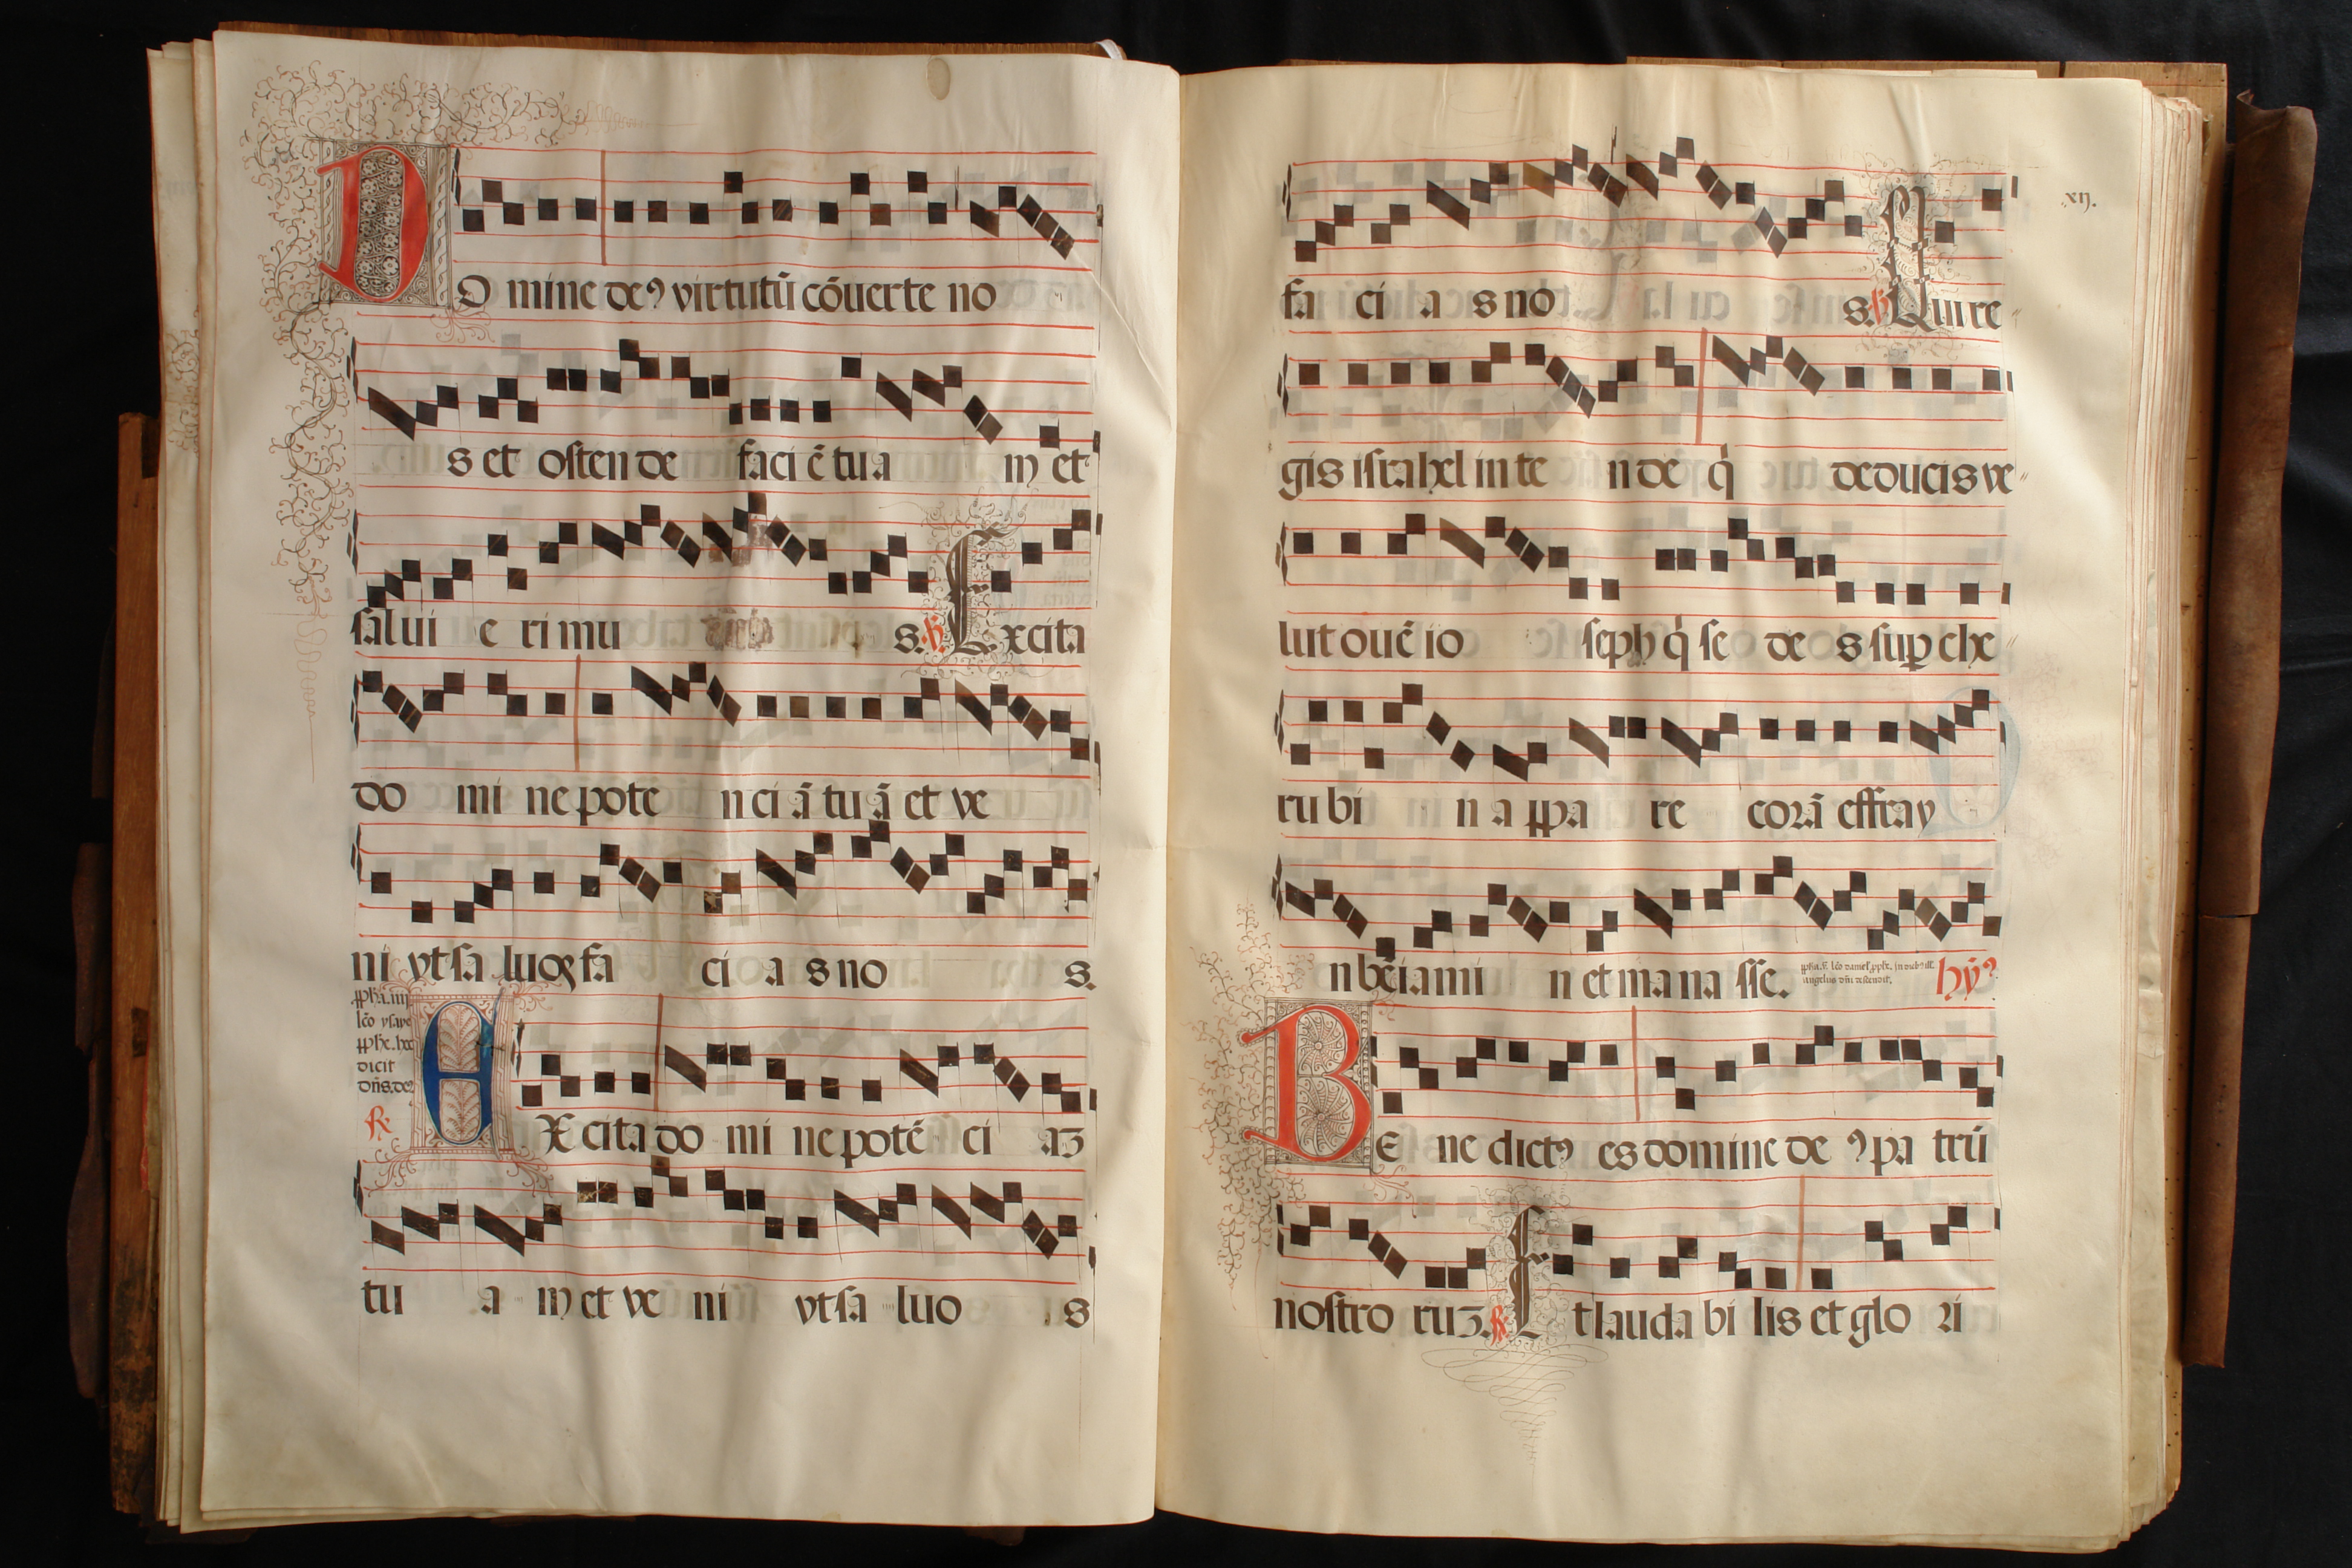 DO mine deꝰ virtutū cōuerte no
s et osten de faci ē tu a m et
salui e ri mu s. ℟ Excita
do mi ne pote n ci ā tu ā et ve
ni vt sa luos fa ci a s no s.
ꝓpha. iiij
lc̄o ysaye
ꝓphe. hec
dicit
dn̄s. deꝰ
℟
EX cita do mi ne potē ci aʒ
tu a m et ve ni vt sa luo s
xij.
fa ci a s no s. ℟ Qui re
gis israhel in te n de q̇ deducis ve
lut ouē io seph q̇ se de s suꝑ che
ru bi n a ppa re corā effray
n bēiami n et ma na sse.
hȳꝰ
BE ne dictꝰ es domine de ꝰ pa trū
nostro ruʒ. ℟ Et lauda bi lis et glo ri